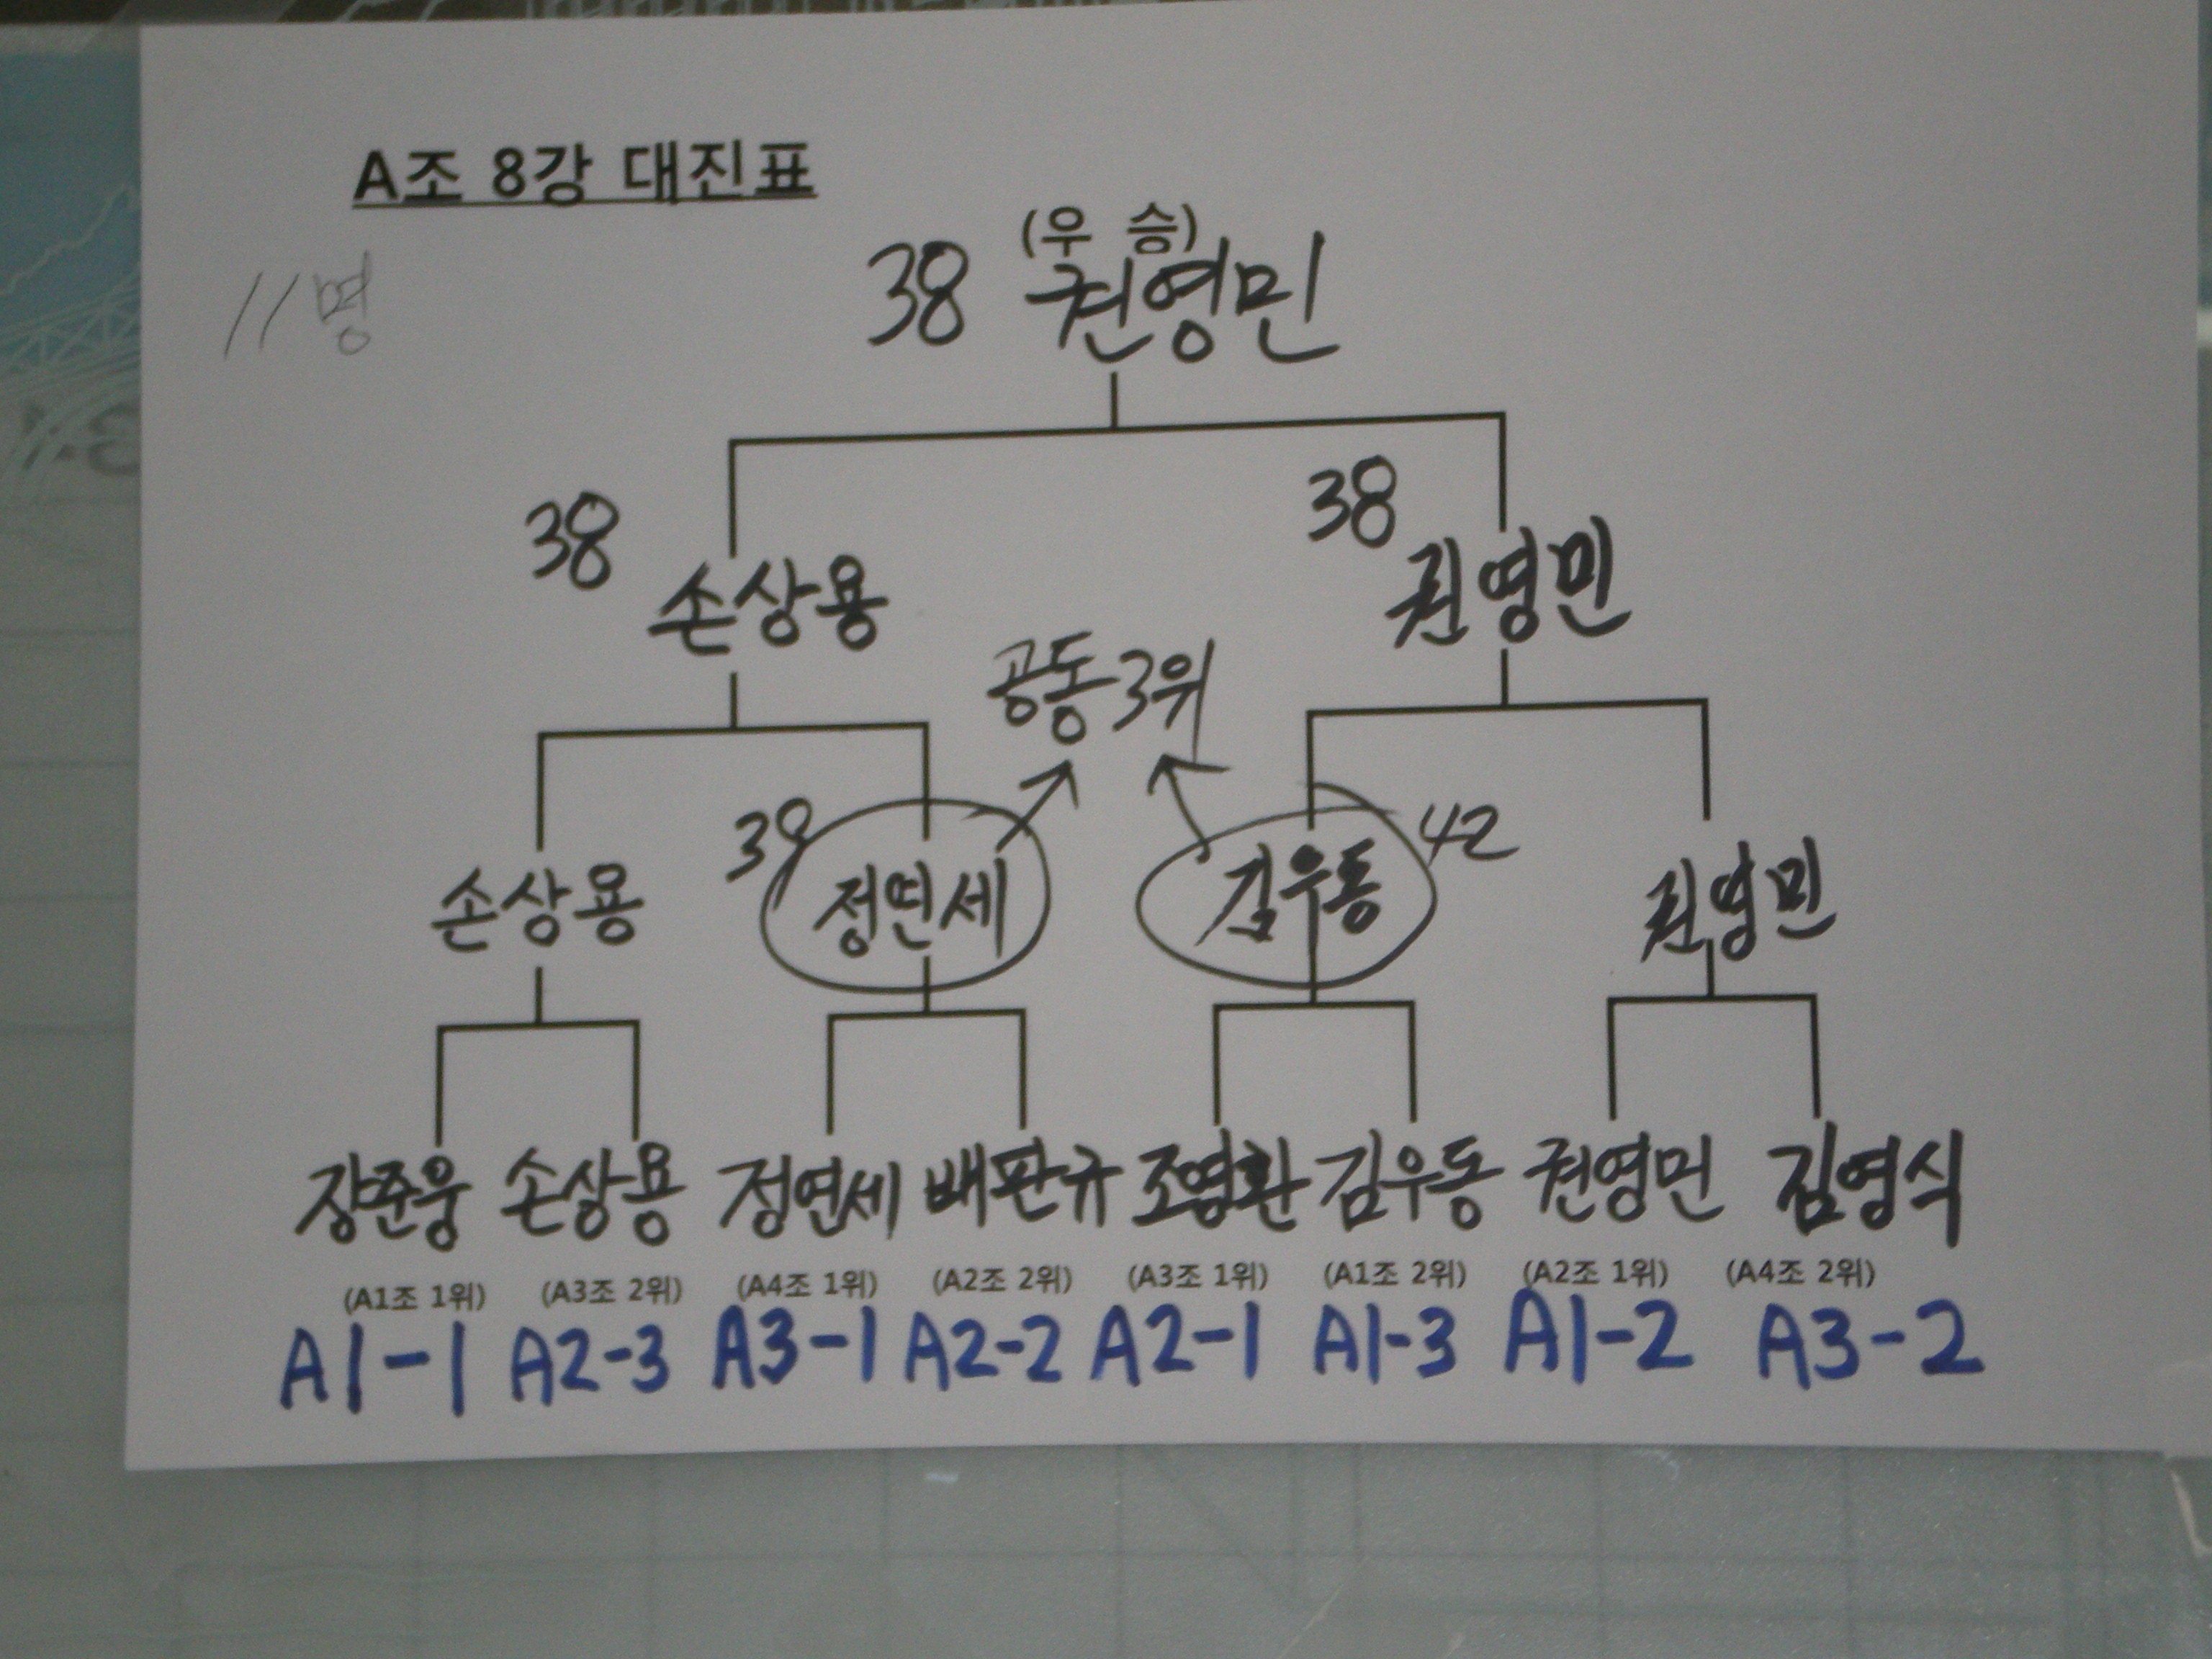 A조 8강 대진표
(우 승)
11명
38 권영민
38 38
손상용 권영민
공동3위
39 42
손상용 정연세 김우동 권영민
장준웅 손상용 정연세 배판규 조영환 김우동 권영민 김영식
(A1조 1위) (A3조 2위) (A4조 1위) (A2조 2위) (A3조 1위) (A1조 2위) (A2조 1위) (A4조 2위)
A1-1 A2-3 A3-1 A2-2 A2-1 A1-3 A1-2 A3-2